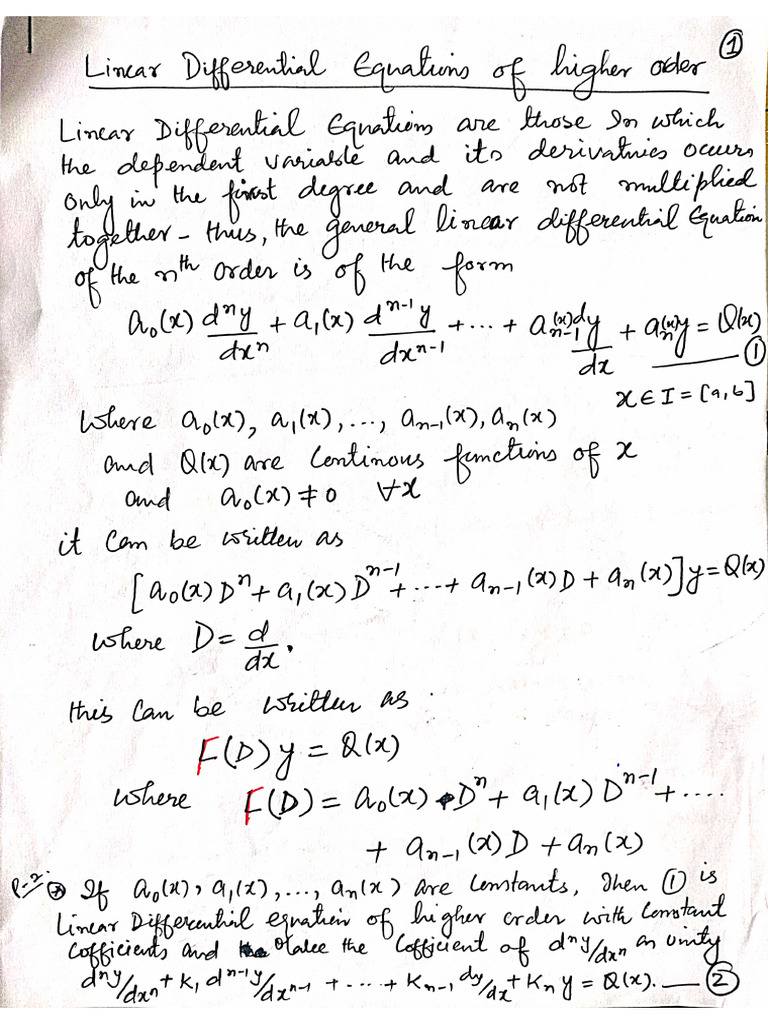 ①
Linear Differential Equations of higher order
Linear Differential Equations are those In which
the dependent variable and its derivatives occurs
only in the first degree and are not multiplied
together - thus, the general linear differential Equation
of the nth order is of the form
a₀(x) dⁿy/dxⁿ + a₁(x) dⁿ⁻¹y/dxⁿ⁻¹ + ... + aₙ₋₁(x) dy/dx + aₙ(x)y = Q(x) —— ①
x ∈ I = [a, b]
Where a₀(x), a₁(x), ..., aₙ₋₁(x), aₙ(x)
and Q(x) are Continous functions of x
and a₀(x) ≠ 0 ∀x
it Can be written as
[a₀(x)Dⁿ + a₁(x)Dⁿ⁻¹ + ... + aₙ₋₁(x)D + aₙ(x)]y = Q(x)
where D = d/dx.
this Can be written as
F(D)y = Q(x)
where F(D) = a₀(x) Dⁿ + a₁(x) Dⁿ⁻¹ + ....
+ aₙ₋₁(x)D + aₙ(x)
P-2 If a₀(x), a₁(x), ..., aₙ(x) are Constants, Then ① is
Linear Differential equation of higher order with Constant
Cofficients and take the Cofficient of dⁿy/dxⁿ as unity
dⁿy/dxⁿ + K₁ dⁿ⁻¹y/dxⁿ⁻¹ + ... + Kₙ₋₁ dy/dx + Kₙ y = Q(x). —— ②